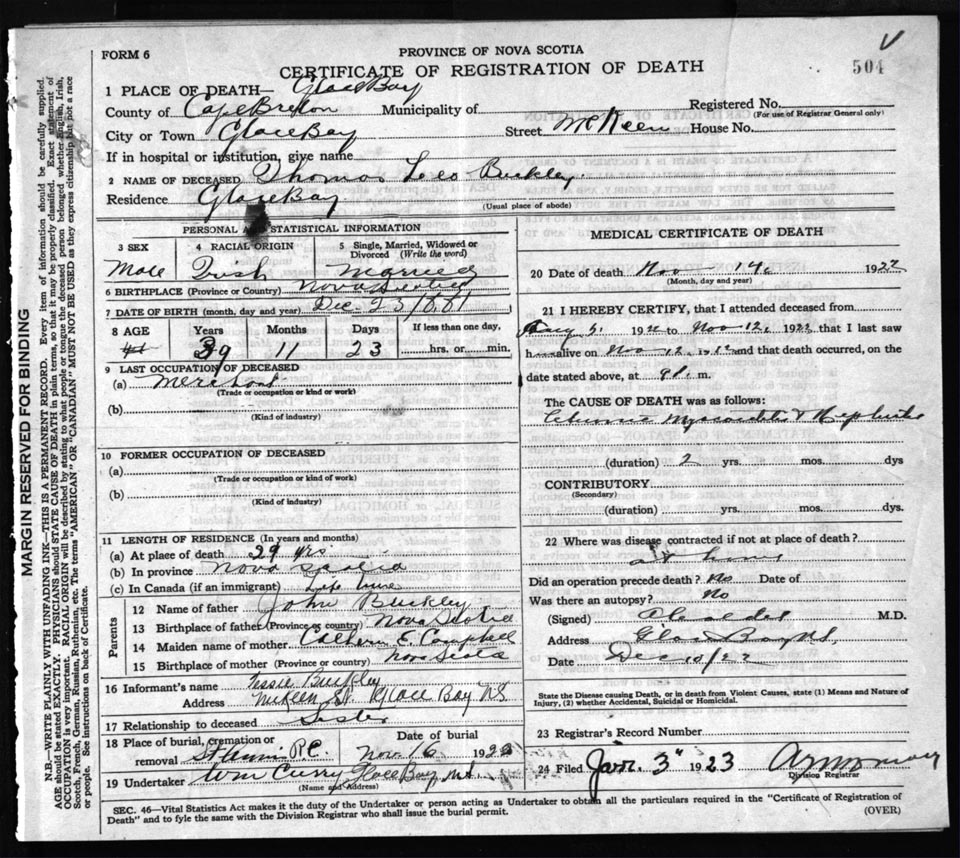 FORM 6
PROVINCE OF NOVA SCOTIA
CERTIFICATE OF REGISTRATION OF DEATH
504
1 PLACE OF DEATH— Glace Bay
County of Cape Breton Municipality of Registered No.
(For use of Registrar General only)
City or Town Glace Bay Street McKeen House No.
If in hospital or institution, give name
2 NAME OF DECEASED Thomas Leo Buckley.
Residence Glace Bay.
(Usual place of abode)
PERSONAL STATISTICAL INFORMATION
3 SEX 4 RACIAL ORIGIN 5 Single, Married, Widowed or Divorced (Write the word)
Male Irish Married
6 BIRTHPLACE (Province or Country) Nova Scotia
7 DATE OF BIRTH (month, day and year) Dec 23 1881
8 AGE Years Months Days If less than one day,
41 39 11 23 hrs. or min.
9 LAST OCCUPATION OF DECEASED
(a) Merchant
(Trade or occupation or kind or work)
(b)
(Kind of industry)
10 FORMER OCCUPATION OF DECEASED
(a)
(Trade or occupation or kind of work)
(b)
(Kind of industry)
11 LENGTH OF RESIDENCE (In years and months)
(a) At place of death 29 yrs
(b) In province Nova Scotia
(c) In Canada (if an immigrant) Life time
Parents
12 Name of father John Buckley
13 Birthplace of father (Province or country) Nova Scotia
14 Maiden name of mother E. Campbell
15 Birthplace of mother (Province or country) Nova Scotia
16 Informant's name Tessie Buckley
Address McKeen St. Glace Bay N.S.
17 Relationship to deceased Sister
18 Place of burial, cremation or removal St Anns R.C. Date of burial Nov 16 1922
19 Undertaker Wm Curry Glace Bay, N.S.
(Name and Address)
MEDICAL CERTIFICATE OF DEATH
20 Date of death Nov 14, 1922
(Month, day and year)
21 I HEREBY CERTIFY, that I attended deceased from
Aug 5, 1922 to Nov 12, 1922 that I last saw
h alive on Nov 12 and that death occurred, on the
date stated above, at 9 P. m.
The CAUSE OF DEATH was as follows:
Chronic Myocarditis & Nephritis
(duration) 2 yrs. mos. dys
CONTRIBUTORY
(Secondary)
(duration) yrs. mos. dys.
22 Where was disease contracted if not at place of death?
at home
Did an operation precede death? No Date of
Was there an autopsy? No
(Signed) M.D.
Address Glace Bay NS
Date Dec 10/22
State the Disease causing Death, or in death from Violent Causes, state (1) Means and Nature of Injury, (2) whether Accidental, Suicidal or Homicidal.
23 Registrar's Record Number
24 Filed Jan. 3rd 1923
Division Registrar
SEC. 46—Vital Statistics Act makes it the duty of the Undertaker or person acting as Undertaker to obtain all the particulars required in the "Certificate of Registration of
Death" and to fyle the same with the Division Registrar who shall issue the burial permit.
(OVER)
MARGIN RESERVED FOR BINDING
N.B.—WRITE PLAINLY WITH UNFADING INK.—THIS IS A PERMANENT RECORD. Every item of information should be carefully supplied.
AGE should be stated EXACTLY. PHYSICIANS should STATE CAUSE OF DEATH in plain terms, so that it may be properly classified. Exact statement of
OCCUPATION is very important. RACIAL ORIGIN will be described by stating to what people or tongue the deceased person belonged whether English, Irish,
Scotch, French, German, Russian, Ruthenian, etc. The terms "AMERICAN" or "CANADIAN" MUST NOT BE USED as they express citizenship but not a race
or people. See instructions on back of Certificate.